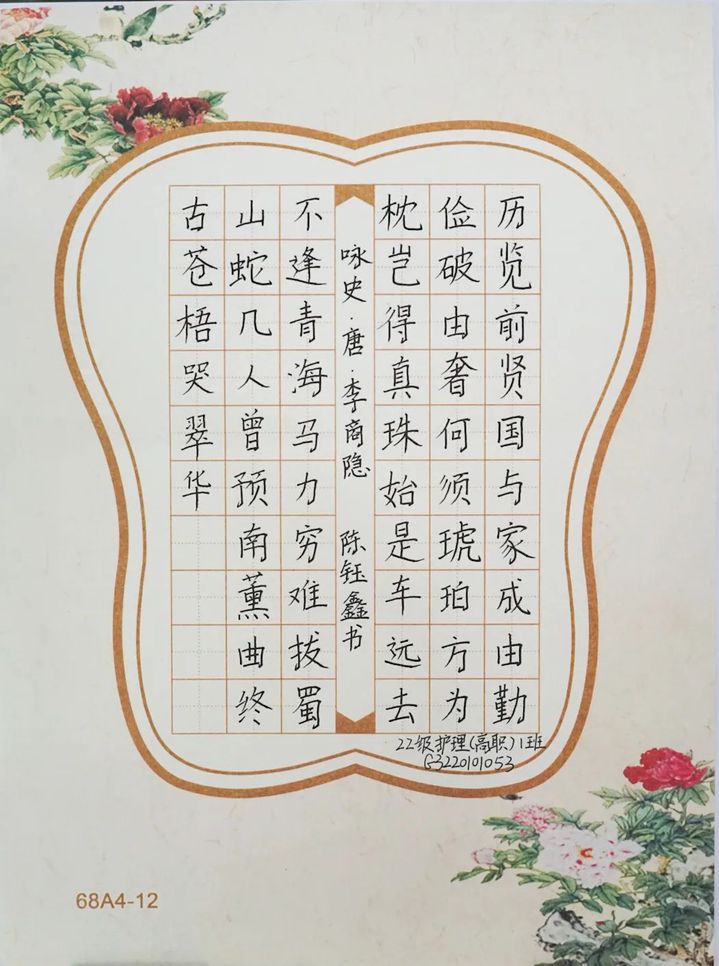 历览前贤国与家成由勤
俭破由奢何须琥珀方为
枕岂得真珠始是车远去
咏史·唐·李商隐 陈钰鑫书
不逢青海马力穷难拔蜀
山蛇几人曾预南薰曲终
古苍梧哭翠华
22级护理(高职)1班
G3220101053
68A4-12